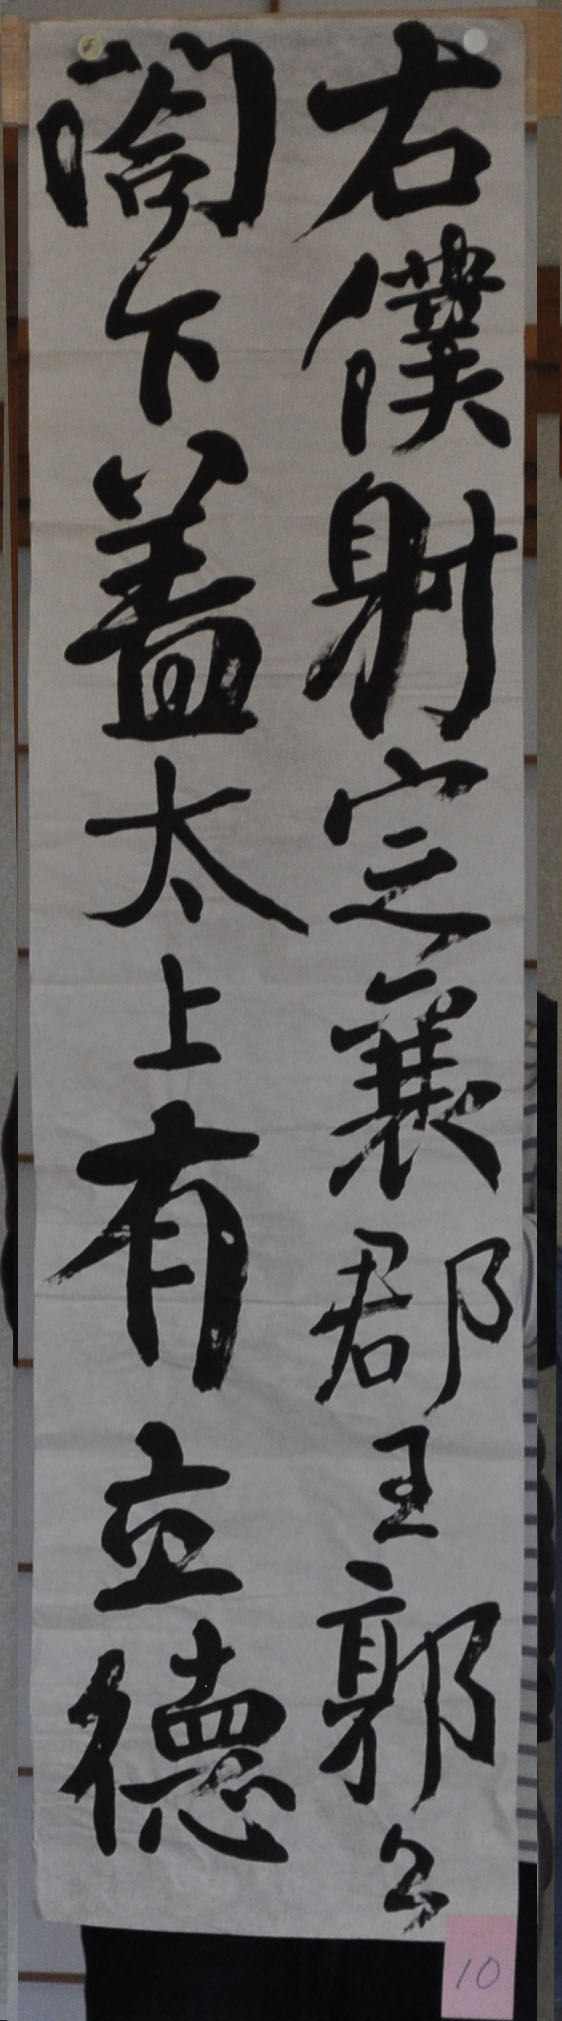 右僕射定襄郡王郭公
閤下蓋太上有立德
10